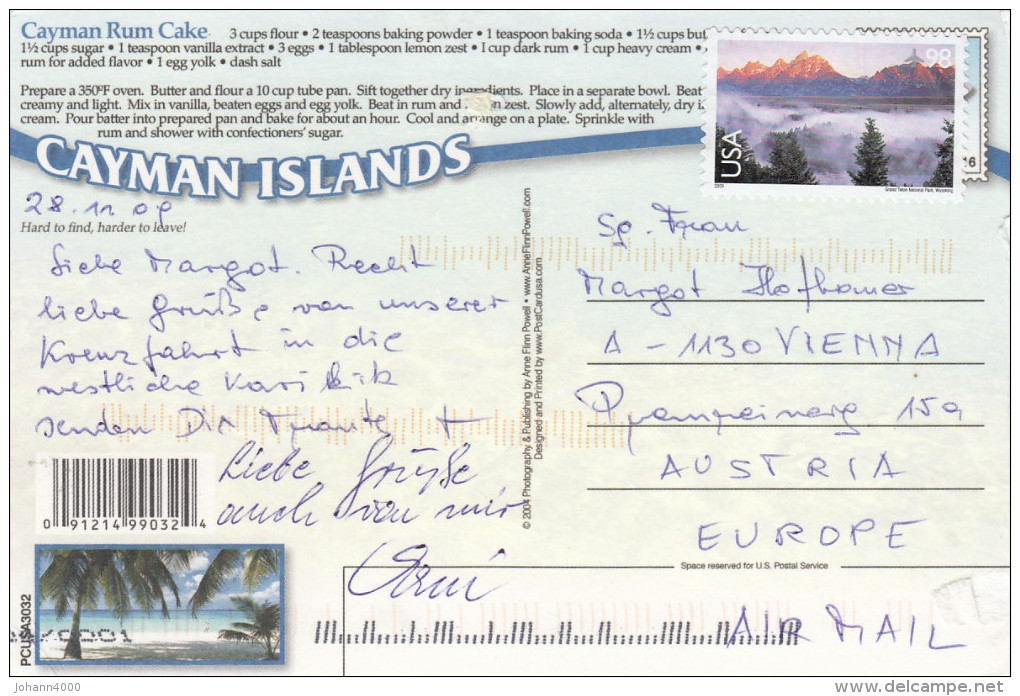 Cayman Rum Cake 3 cups flour • 2 teaspoons baking powder • 1 teaspoon baking soda • 1½ cups but
1½ cups sugar • 1 teaspoon vanilla extract • 3 eggs • 1 tablespoon lemon zest • 1 cup dark rum • 1 cup heavy cream •
rum for added flavor • 1 egg yolk • dash salt
Prepare a 350ºF oven. Butter and flour a 10 cup tube pan. Sift together dry ingredients. Place in a separate bowl. Beat
creamy and light. Mix in vanilla, beaten eggs and egg yolk. Beat in rum and zest. Slowly add, alternately, dry i
cream. Pour batter into prepared pan and bake for about an hour. Cool and arrange on a plate. Sprinkle with
rum and shower with confectioners' sugar.
CAYMAN ISLANDS
28.11.09
Hard to find, harder to leave!
Liebe Margot. Recht
liebe Grüße von unserer
Kreuzfahrt in die
westliche Karibik
senden Dir +
Liebe Grüße
auch von mir
0 91214 99032 4
PCUSA3032
© 2004 Photography & Publishing by Anne Flinn Powell • www.AnneFlinnPowell.com
Designed and Printed by www.PostCardusa.com
98
USA
2005
Grand Teton National Park, Wyoming
16
Sg. Frau
Margot Hofbauer
A - 1130 VIENNA
15a
AUSTRIA
EUROPE
Space reserved for U.S. Postal Service
AIR MAIL
© johann4000
www.delcampe.net